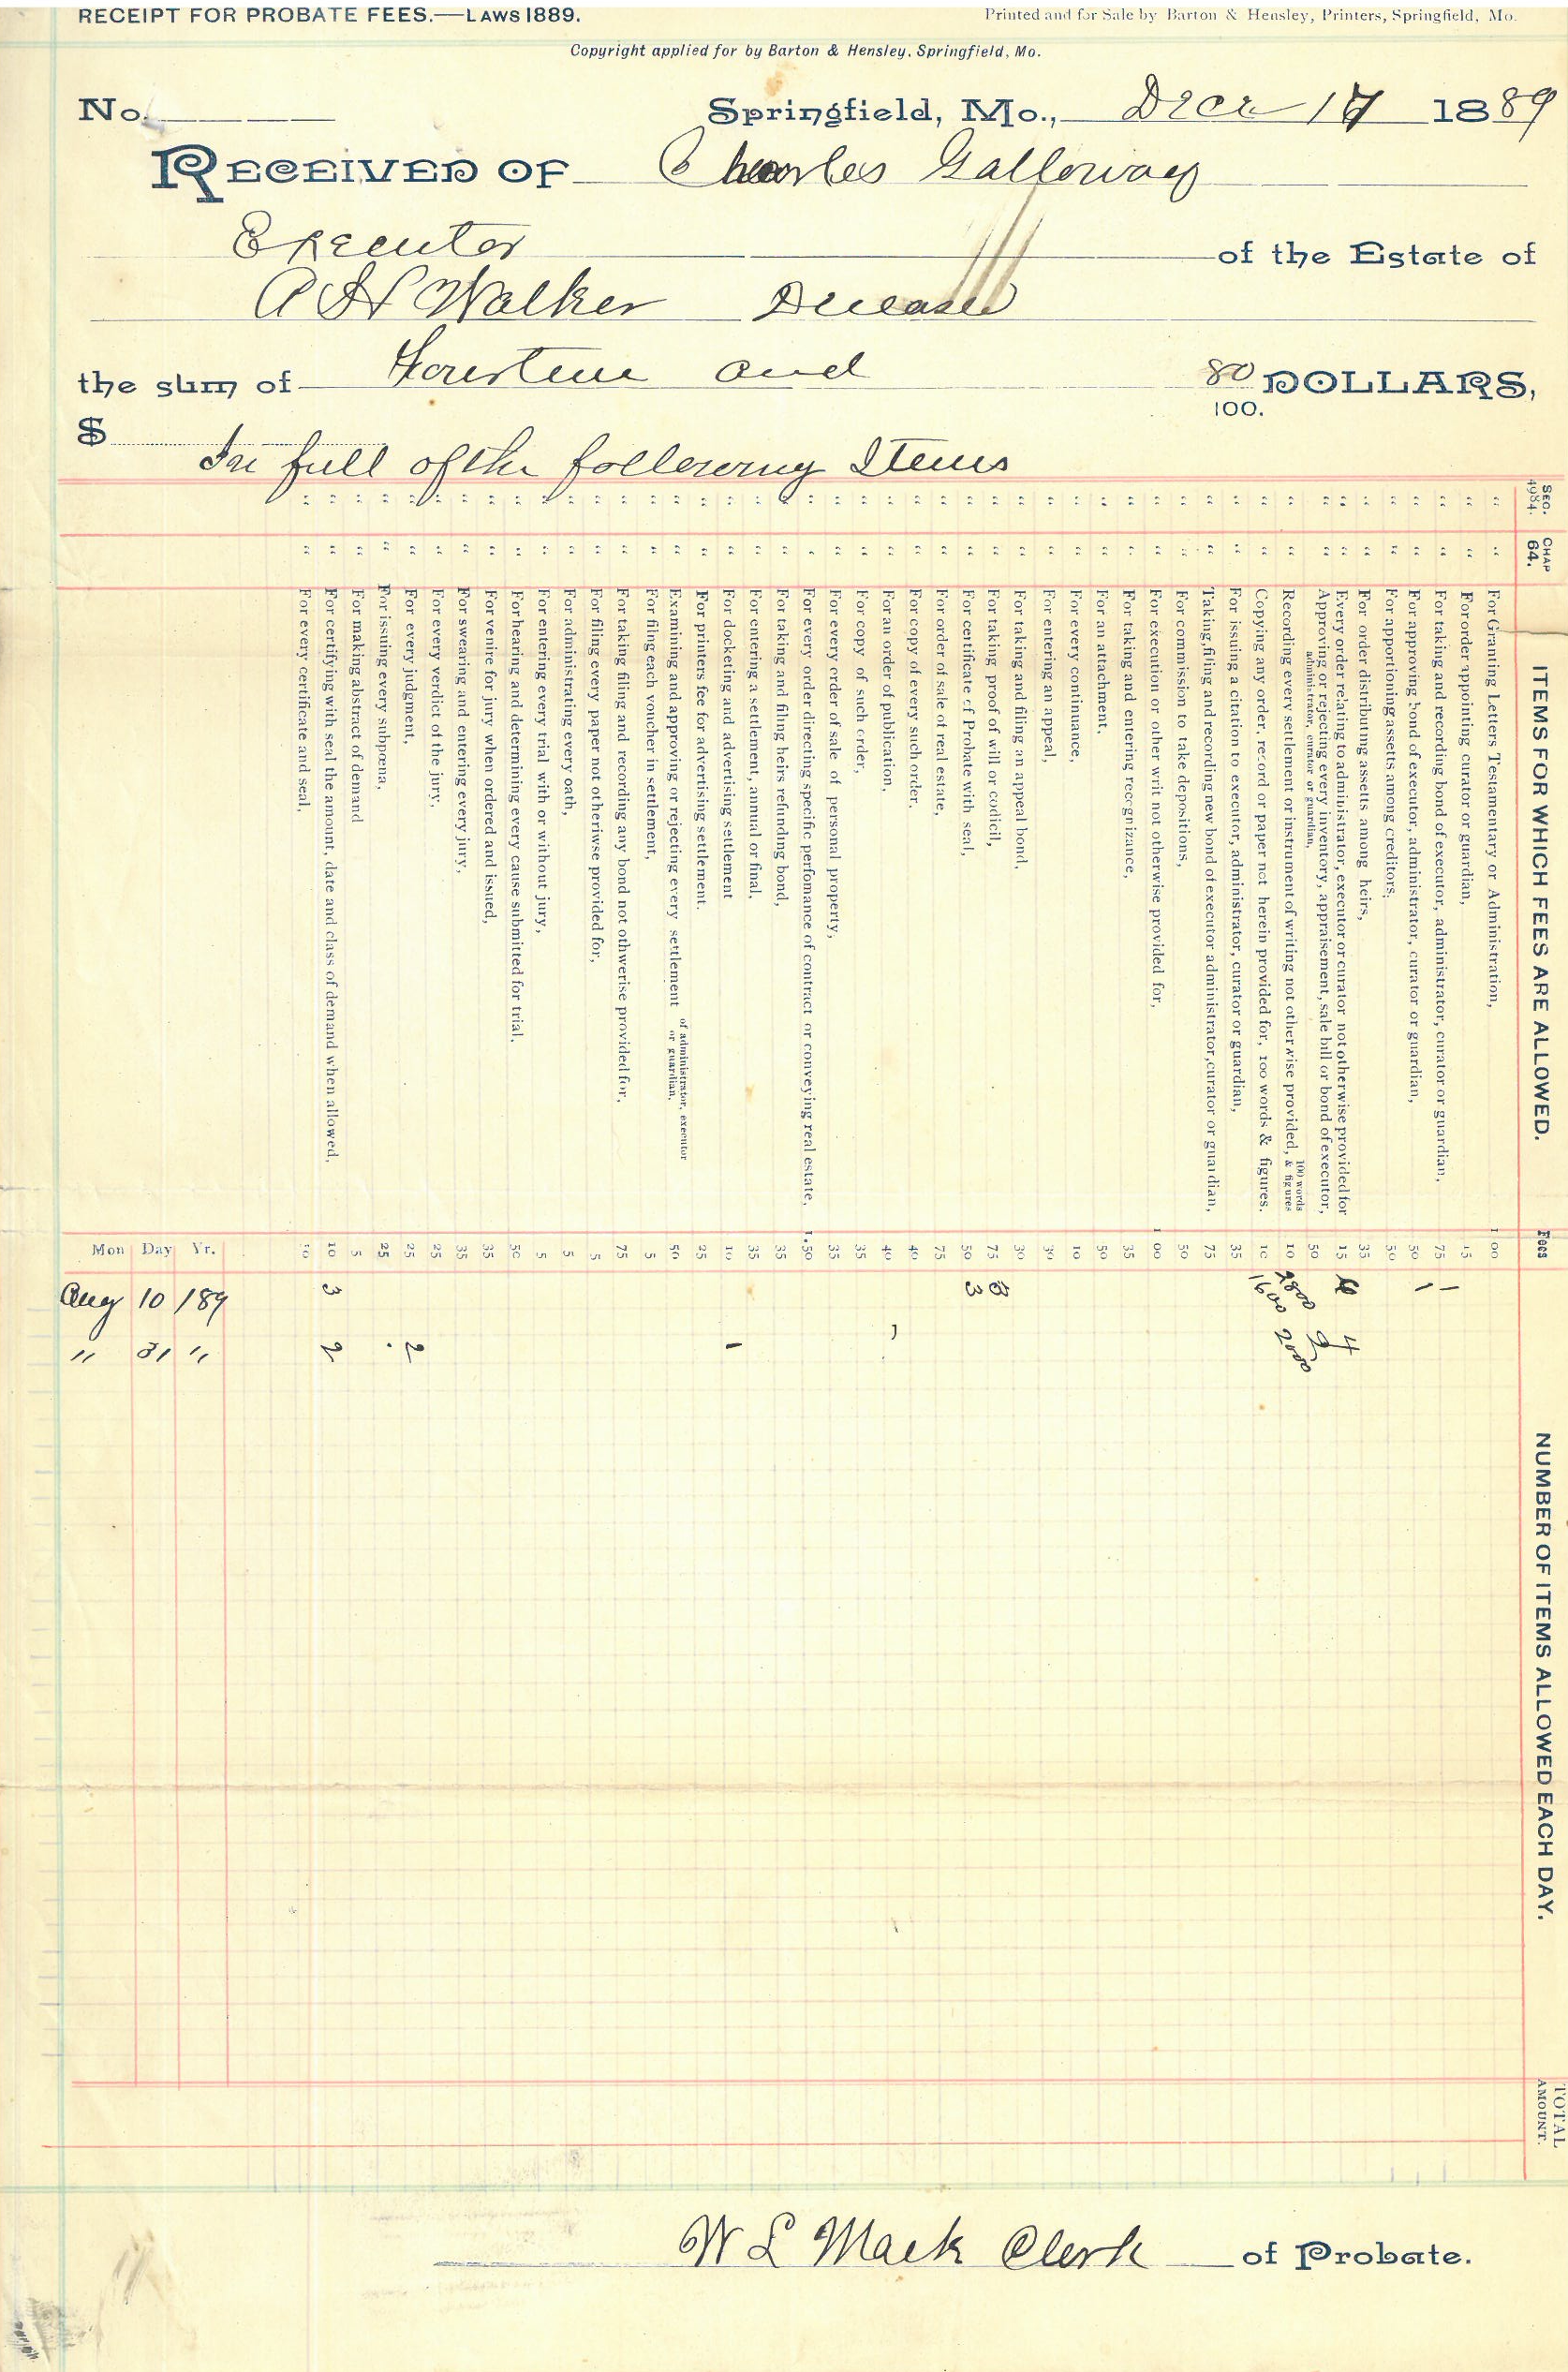 RECEIPT FOR PROBATE FEES.—LAWS 1889.
Printed and for Sale by Barton & Hensley, Printers, Springfield, Mo.
Copyright applied for by Barton & Hensley, Springfield, Mo.
No.
Springfield, Mo., 17 1889
RECEIVED OF Charles Galloway
Executor of the Estate of
A H Walker Deceased
the sum of Fourteen and 80 DOLLARS,
100.
$
In full of the following Items
SEC. 4984.
CHAP 64.
ITEMS FOR WHICH FEES ARE ALLOWED.
Fees
NUMBER OF ITEMS ALLOWED EACH DAY.
TOTAL AMOUNT.
" " For Granting Letters Testamentary or Administration, 1 00
" " For order appointing curator or guardian, 15
" " For taking and recording bond of executor, administrator, curator or guardian, 75 1
" " For approving bond of executor, administrator, curator or guardian, 50 1
" " For apportioning assets among creditors, 50
" " For order distributing assetts among heirs, 35
" " Every order relating to administrator, executor or curator not otherwise provided for 15 4
" " Approving or rejecting every inventory, appraisement, sale bill or bond of executor, administrator, curator or guardian, 50 2
" " Recording every settlement or instrument of writing not otherwise provided, 100 words & figures 10 2800 2000
" " Copying any order, record or paper not herein provided for, 100 words & figures. 10 1600
" " For issuing a citation to executor, administrator, curator or guardian, 35
" " Taking, filing and recording new bond of executor administrator, curator or guardian, 75
" " For commission to take depositions, 50
" " For execution or other writ not otherwise provided for, 1 00
" " For taking and entering recognizance, 35
" " For an attachment, 50
" " For every continuance, 10
" " For entering an appeal, 30
" " For taking and filing an appeal bond, 30
" " For taking proof of will or codicil, 75 3
" " For certificate of Probate with seal, 50 3
" " For order of sale of real estate, 75
" " For copy of every such order, 40
" " For an order of publication, 40 1
" " For copy of such order, 35
" " For every order of sale of personal property, 35
" " For every order directing specific perfomance of contract or conveying real estate, 1.50
" " For taking and filing heirs refunding bond, 35
" " For entering a settlement, annual or final, 35
" " For docketing and advertising settlement 10 1
" " For printers fee for advertising settlement. 25
" " Examining and approving or rejecting every settlement of administrator, executor or guardian, 50
" " For filing each voucher in settlement, 5
" " For taking filing and recording any bond not othwerise provided for, 75
" " For filing every paper not otheriwse provided for, 5
" " For administrating every oath, 5
" " For entering every trial with or without jury, 5
" " For hearing and determining every cause submitted for trial, 50
" " For venire for jury when ordered and issued, 35
" " For swearing and entering every jury, 35
" " For every verdict of the jury, 25
" " For every judgment, 25 2
" " For issuing every subpœna, 25
" " For making abstract of demand 5
" " For certifying with seal the amount, date and class of demand when allowed, 10 3 2
" " For every certificate and seal,
Mon Day Yr.
Aug 10 /89
" 31 "
W L Mack Clerk of Probate.